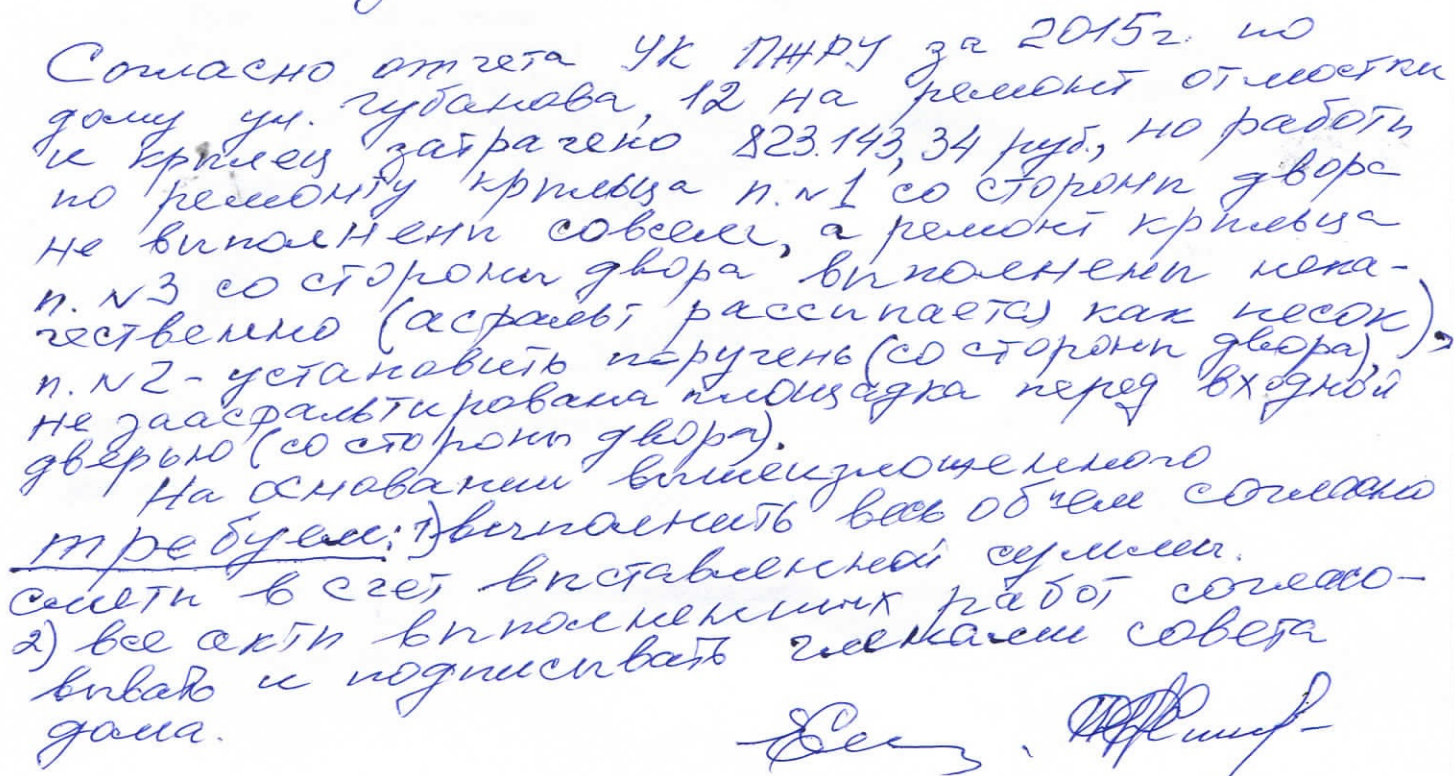 Согласно отчета УК ПЖРУ за 2015г. по
дому ул. Губанова, 12 на ремонт отмостки
и крылец затрачено 823.143,34 руб., но работы
по ремонту крыльца п.№1 со стороны двора
не выполнены совсем, а ремонт крыльца
п.№3 со стороны двора выполнены нека-
чественно (асфальт рассыпается как песок),
п.№2 - установить поручень (со стороны двора),
не заасфальтирована площадка перед входной
дверью (со стороны двора).
На основании вышеизложенного
требуем: 1) выполнить весь объем согласно
сметы в счет выставленной суммы.
2) все акты выполненных работ согласо-
вывать и подписывать членами совета
дома.